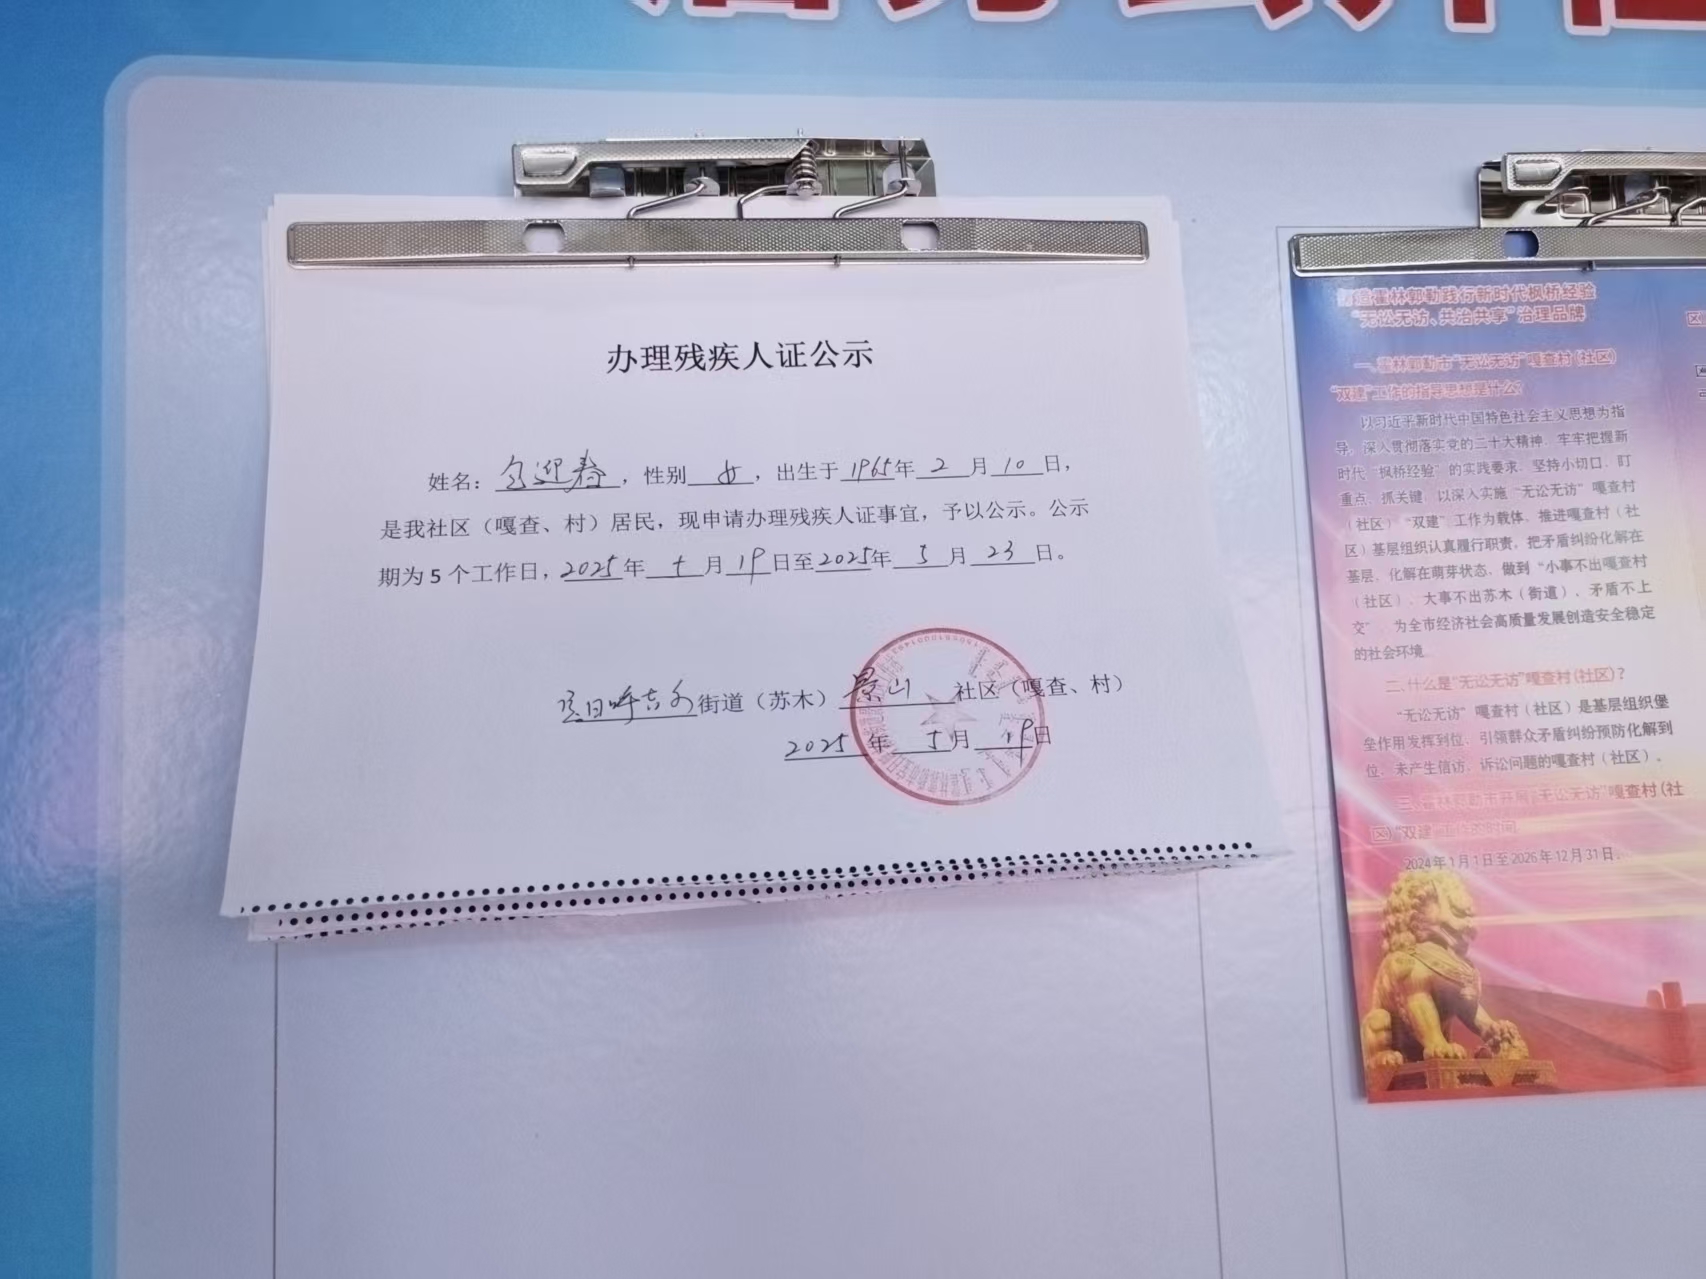 办理残疾人证公示
姓名：包迎春，性别 女，出生于 1965年 2 月 10 日，
是我社区（嘎查、村）居民，现申请办理残疾人证事宜，予以公示。公示
期为 5 个工作日，2025 年 5 月 19 日至 2025年 5 月 23 日。
宝日呼吉尔街道（苏木）景山 社区（嘎查、村）
2025 年 5 月 19 日
霍林郭勒践行新时代枫桥经验
“无讼无访、共治共享”治理品牌
一、霍林郭勒市“无讼无访”嘎查村（社区）
“双建”工作的指导思想是什么？
以习近平新时代中国特色社会主义思想为指
导，深入贯彻落实党的二十大精神，牢牢把握新
时代“枫桥经验”的实践要求，坚持小切口、盯
重点、抓关键，以深入实施“无讼无访”嘎查村
（社区）“双建”工作为载体，推进嘎查村（社
区）基层组织认真履行职责，把矛盾纠纷化解在
基层、化解在萌芽状态，做到“小事不出嘎查村
（社区）、大事不出苏木（街道）、矛盾不上
交”，为全市经济社会高质量发展创造安全稳定
的社会环境。
二、什么是“无讼无访”嘎查村（社区）？
“无讼无访”嘎查村（社区）是基层组织堡
垒作用发挥到位，引领群众矛盾纠纷预防化解到
位，未产生信访、诉讼问题的嘎查村（社区）。
三、霍林郭勒市开展“无讼无访”嘎查村（社
区）“双建”工作的时间
2024年1月1日至2026年12月31日。